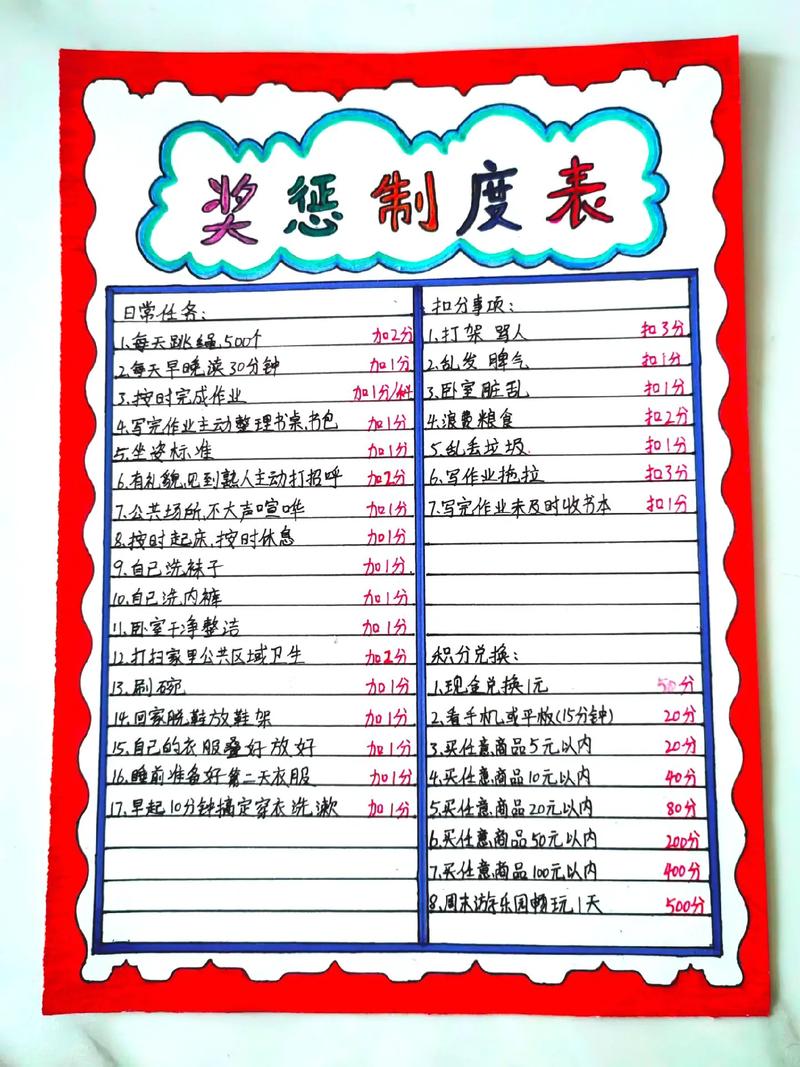 奖惩制度表
日常任务:
1.每天跳绳,500个 加2分
2.每天早晚,读30分钟 加1分
3.按时完成作业 加1分/科
4.写完作业主动整理书桌,书包 加1分
5.坐姿标准 加1分
6.有礼貌,见到熟人主动打招呼 加2分
7.公共场所,不大声喧哗 加1分
8.按时起床,按时休息 加1分
9.自己洗袜子 加1分
10.自己洗内裤 加1分
11.卧室干净整洁 加1分
12.打扫家里公共区域卫生 加2分
13.刷碗 加1分
14.回家脱鞋放鞋架 加1分
15.自己的衣服叠好放好 加1分
16.睡前准备好第二天衣服 加1分
17.早起10分钟搞定穿衣洗漱 加1分
扣分事项:
1.打架 骂人 扣3分
2.乱发脾气 扣1分
3.卧室脏乱 扣1分
4.浪费粮食 扣2分
5.乱丢垃圾 扣1分
6.写作业拖拉 扣3分
7.写完作业未及时收书本 扣1分
积分兑换:
1.现金兑换1元 50分
2.看手机或平板(15分钟) 20分
3.买任意商品5元以内 20分
4.买任意商品10元以内 40分
5.买任意商品20元以内 80分
6.买任意商品50元以内 200分
7.买任意商品100元以内 400分
8.周末游乐园畅玩1天 500分